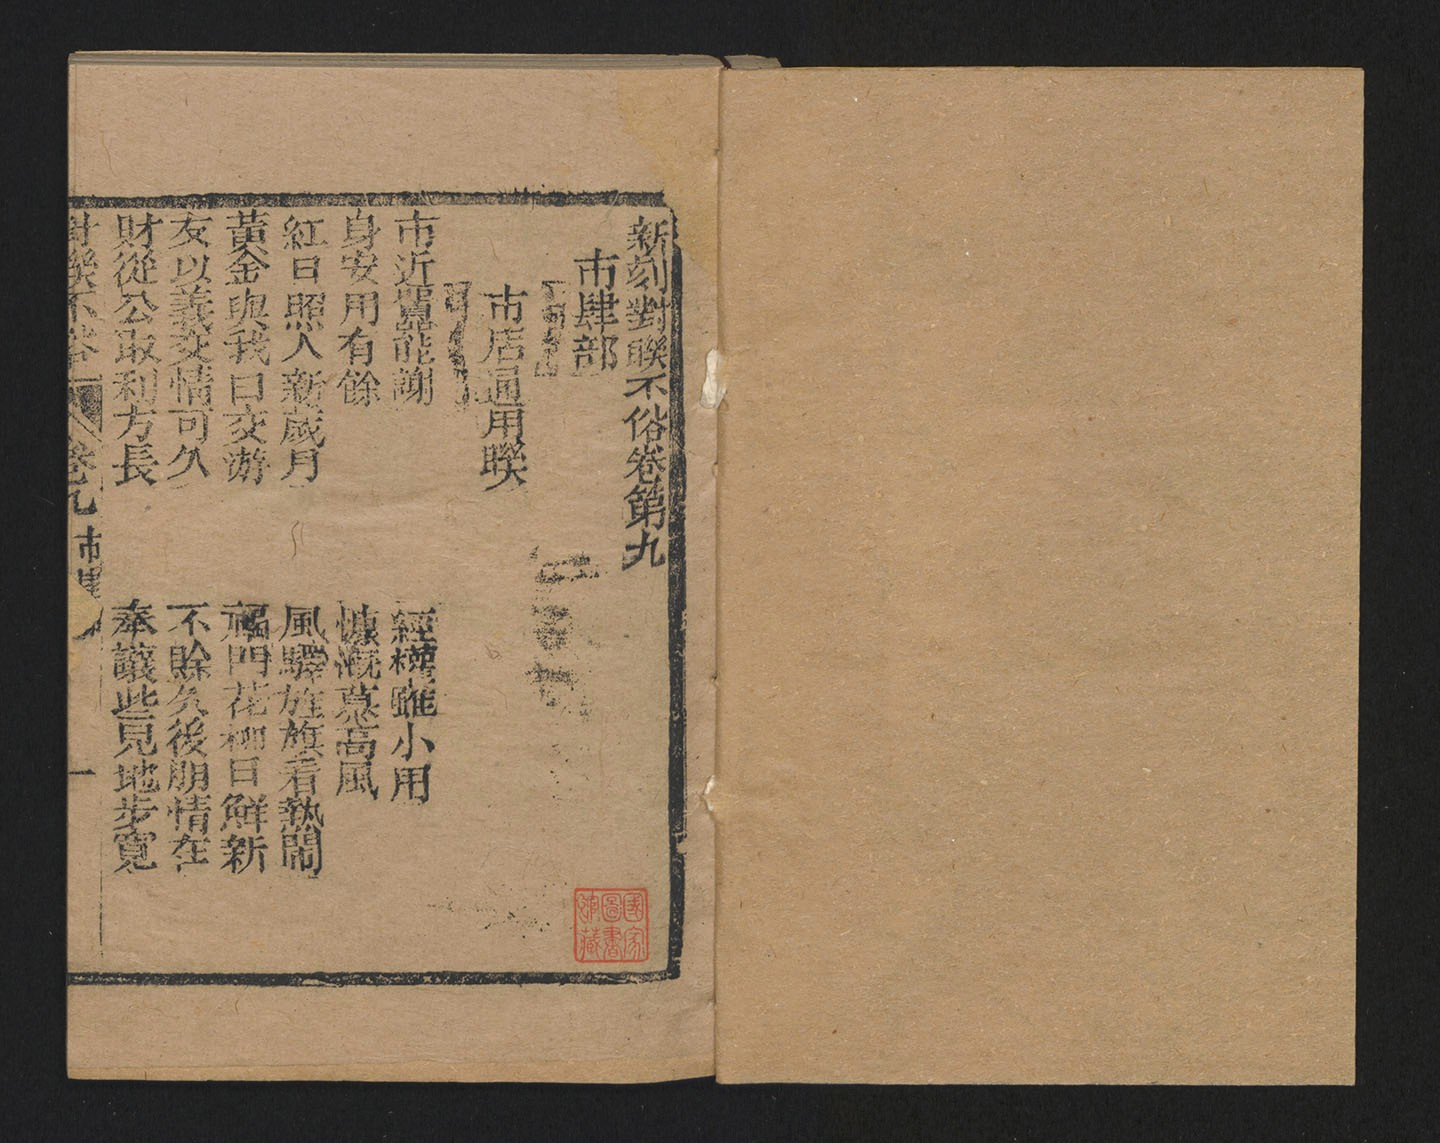 新刻對聯不俗卷第九
市肆部
市店通用聯
市近囂能謝
經權雖小用
身安用有餘
慷慨慕高風
紅日照人新歲月
風驛旌旗看熱鬧
黃金與我曰交游
福門花柳目鮮新
友以義交情可久
不賒久後朋情在
財從公取利方長
奉讓些見地步寬
對聯不俗
卷九
市
一
國家圖書館藏